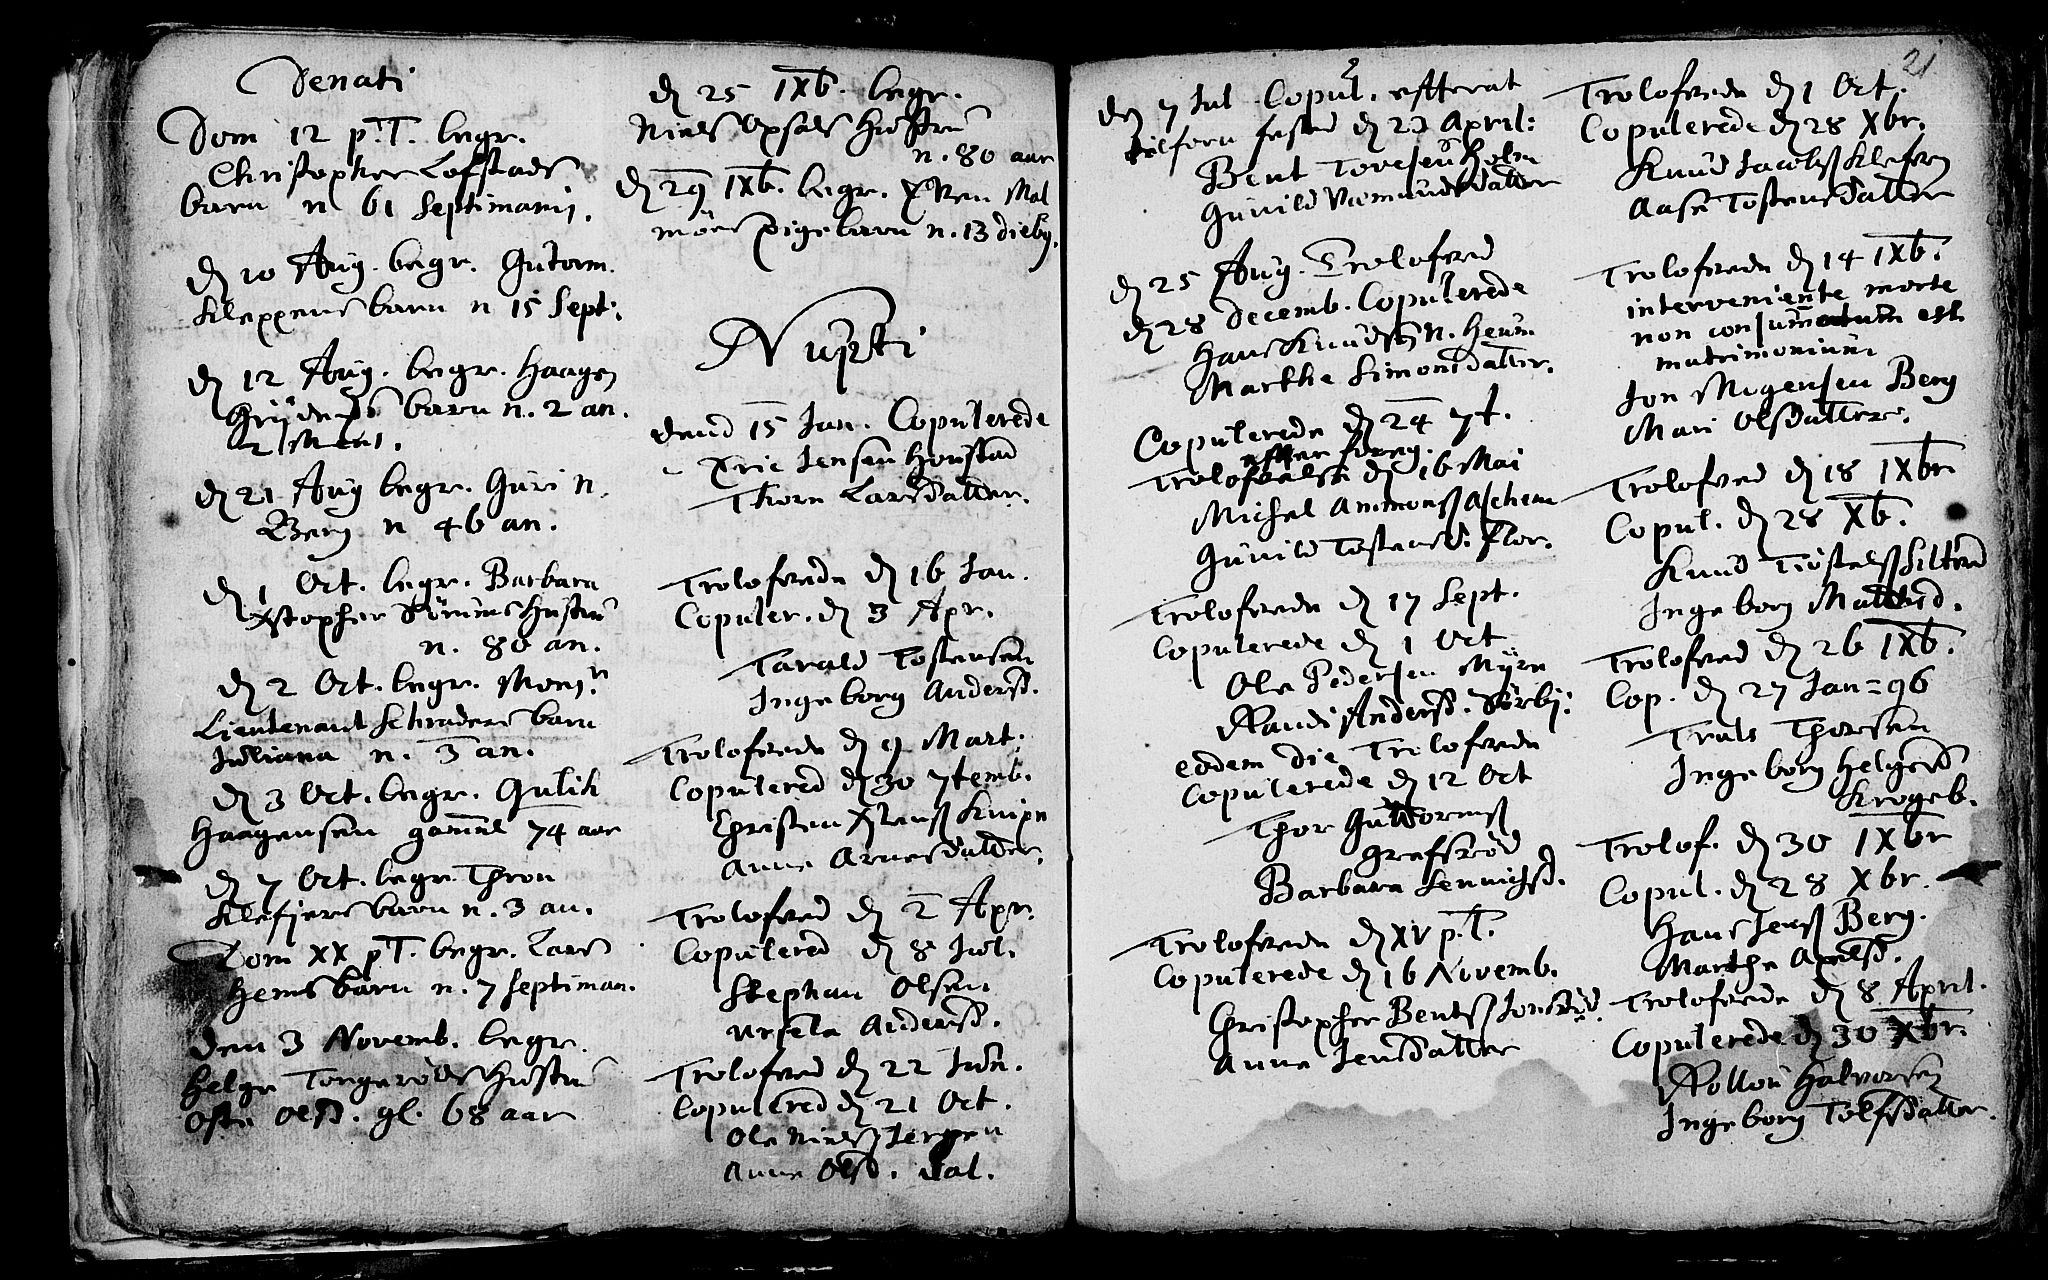 Denati
Dom 12 p.T. begr.
Christopher Lofstads
barn n 61 Septimanis.
d 10 Aug. begr. Gutorm
Kleppens barn n 15 Sept:
d 12 Aug. begr. Haagen
barn n. 2 an.
2 Mens.
d 21 Aug begr. Guri n.
Berg n 46 an.
d 1 Oct. begr. Barbara
Xstopher hustru
n. 80 an.
d 2 Oct. begr. Monsr
Lieutenant Schraders barn
Juliana n. 3 an.
d 3 Oct. begr. Gulik
Haagensen gammel 74 aar
d 7 Oct. begr. Thron
Klefjers barn n. 3 an.
Dom XX pT. begr. Lars
Hems barn n. 7 septiman.
den 3 Novemb. begr.
Helge Torgerøds Hustru
Olsd. gl. 68 aar
d 25 IXb. begr.
Niels Opsals Hustru
n. 80 aar
d 29 IXb. begr. Iven Mal
möes pigebarn n. 13 dieb9.
Nupti
dend 15 Jan. Copulerede
Eric Jensen Honstad
Thore Larsdatter.
Trolofvede d 16 Jan.
Copuler. d 3 Apr.
Tarald Tostensen
Ingeborg Andersd.
Trolofvede d 9 Mart.
Copulered d 30 7temb.
Christen Knipe
Anne Arnesdatter.
Trolofved d 2 Apr.
Copulered d 8 Jul.
Stephan Olsen
Ursela Andersd.
Trolofved d 22 Jun.
Copulered d 21 Oct.
Ole Niels Jergen
Anne Olsd. Dal.
21
de 7 Jul Copul. efterat
tilforn fested d 23 April:
Bent Tovesen Holm
Gunild Vemundsdatter
d 25 Aug. Trolofved
d 28 Decemb. Copulerede
Hans Knuds n. Hem.
Marthe Simonsdatter.
Copulerede d 24 7t.
efter foreg.
Trolofvelse d 16 Mai
Michel Ammonss Aschem
Gunild Tostensd. Flor.
Trolofvede d 17 Sept.
Copulerede d 1 Oct
Ole Pedersen Myre
Randi Andersd. Sørby:
eodem die Trolofvede
Copulerede d 12 Oct
Thor Guttormss
Grefsrød
Barbara Lennichsd.
Trolofvede d XV p.T.
Copulerede d 16 Novemb.
Christopher Bentss Jonsrød.
Anne Jensdatter
Trolofvede d 1 Oct.
Copulerede d 28 Xbr.
Knud Jacobss Klefjer
Aase Tostensdatter
Trolofvede d 14 IXb.
interveniente morte
non consumatum est
matrimonium
Jon Mogensen Berg
Mari Olsdatter.
Trolofved d 18 IXbr
Copul. d 28 Xb.
Knud Siltved
Ingeborg Mattisd.
Trolofved d 26 IXb.
Cop. d 27 Jan = 96
Truls Thorsen
Ingeborg Helgesd
Krogeb.
Trolof. d 30 IXbr
Copul. d 28 Xbr.
Hans Jenss Berg.
Marthe Axelsd.
Trolofvede d 8 April.
Copulerede d 30 Xbr.
Rollou Halvorsen
Ingeborg Tolfsdatter.